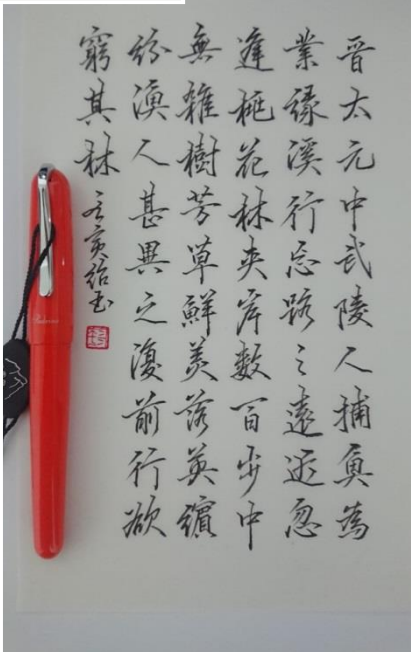 晋太元中武陵人捕魚為
業緣溪行忘路之遠近忽
逢桃花林夾岸數百步中
無雜樹芳草鮮美落英繽
紛漁人甚異之復前行欲
窮其林